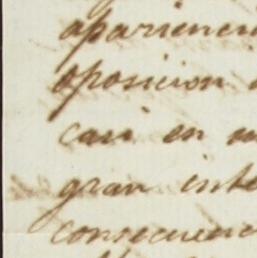 aparienci
oposicion
casi en
gran inte
consecuenc